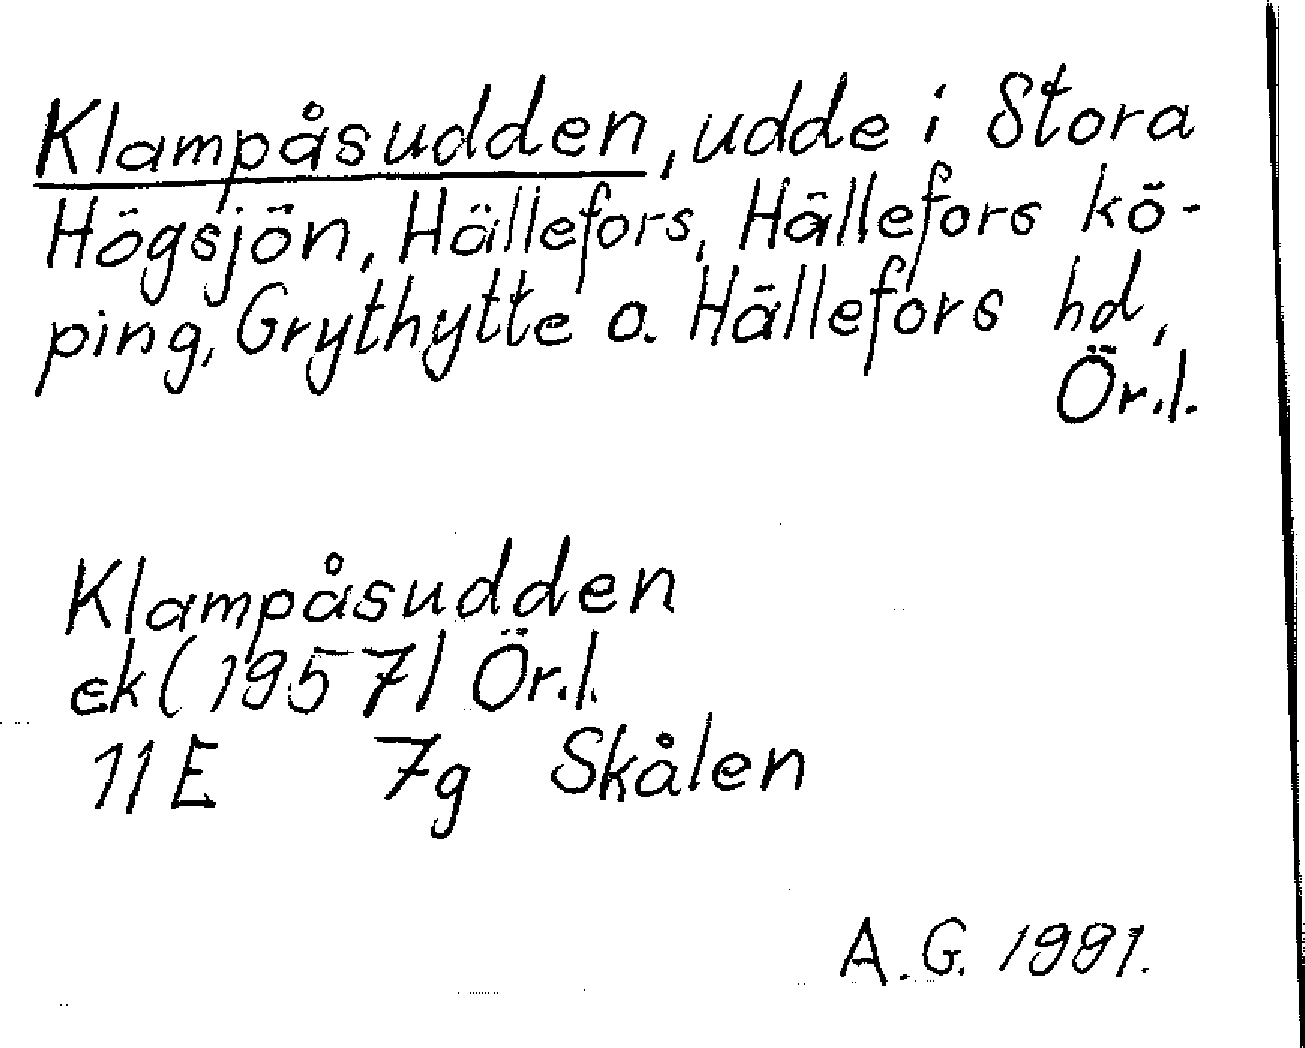 Klampåsudden, udde i Stora
Högsjön, Hällefors, Hällefors kö-
ping, Grythytte o. Hällefors hd,
Ör.l.
Klampåsudden
ek (1957) Ör.l.
11E 7g Skålen
A.G. 1991.